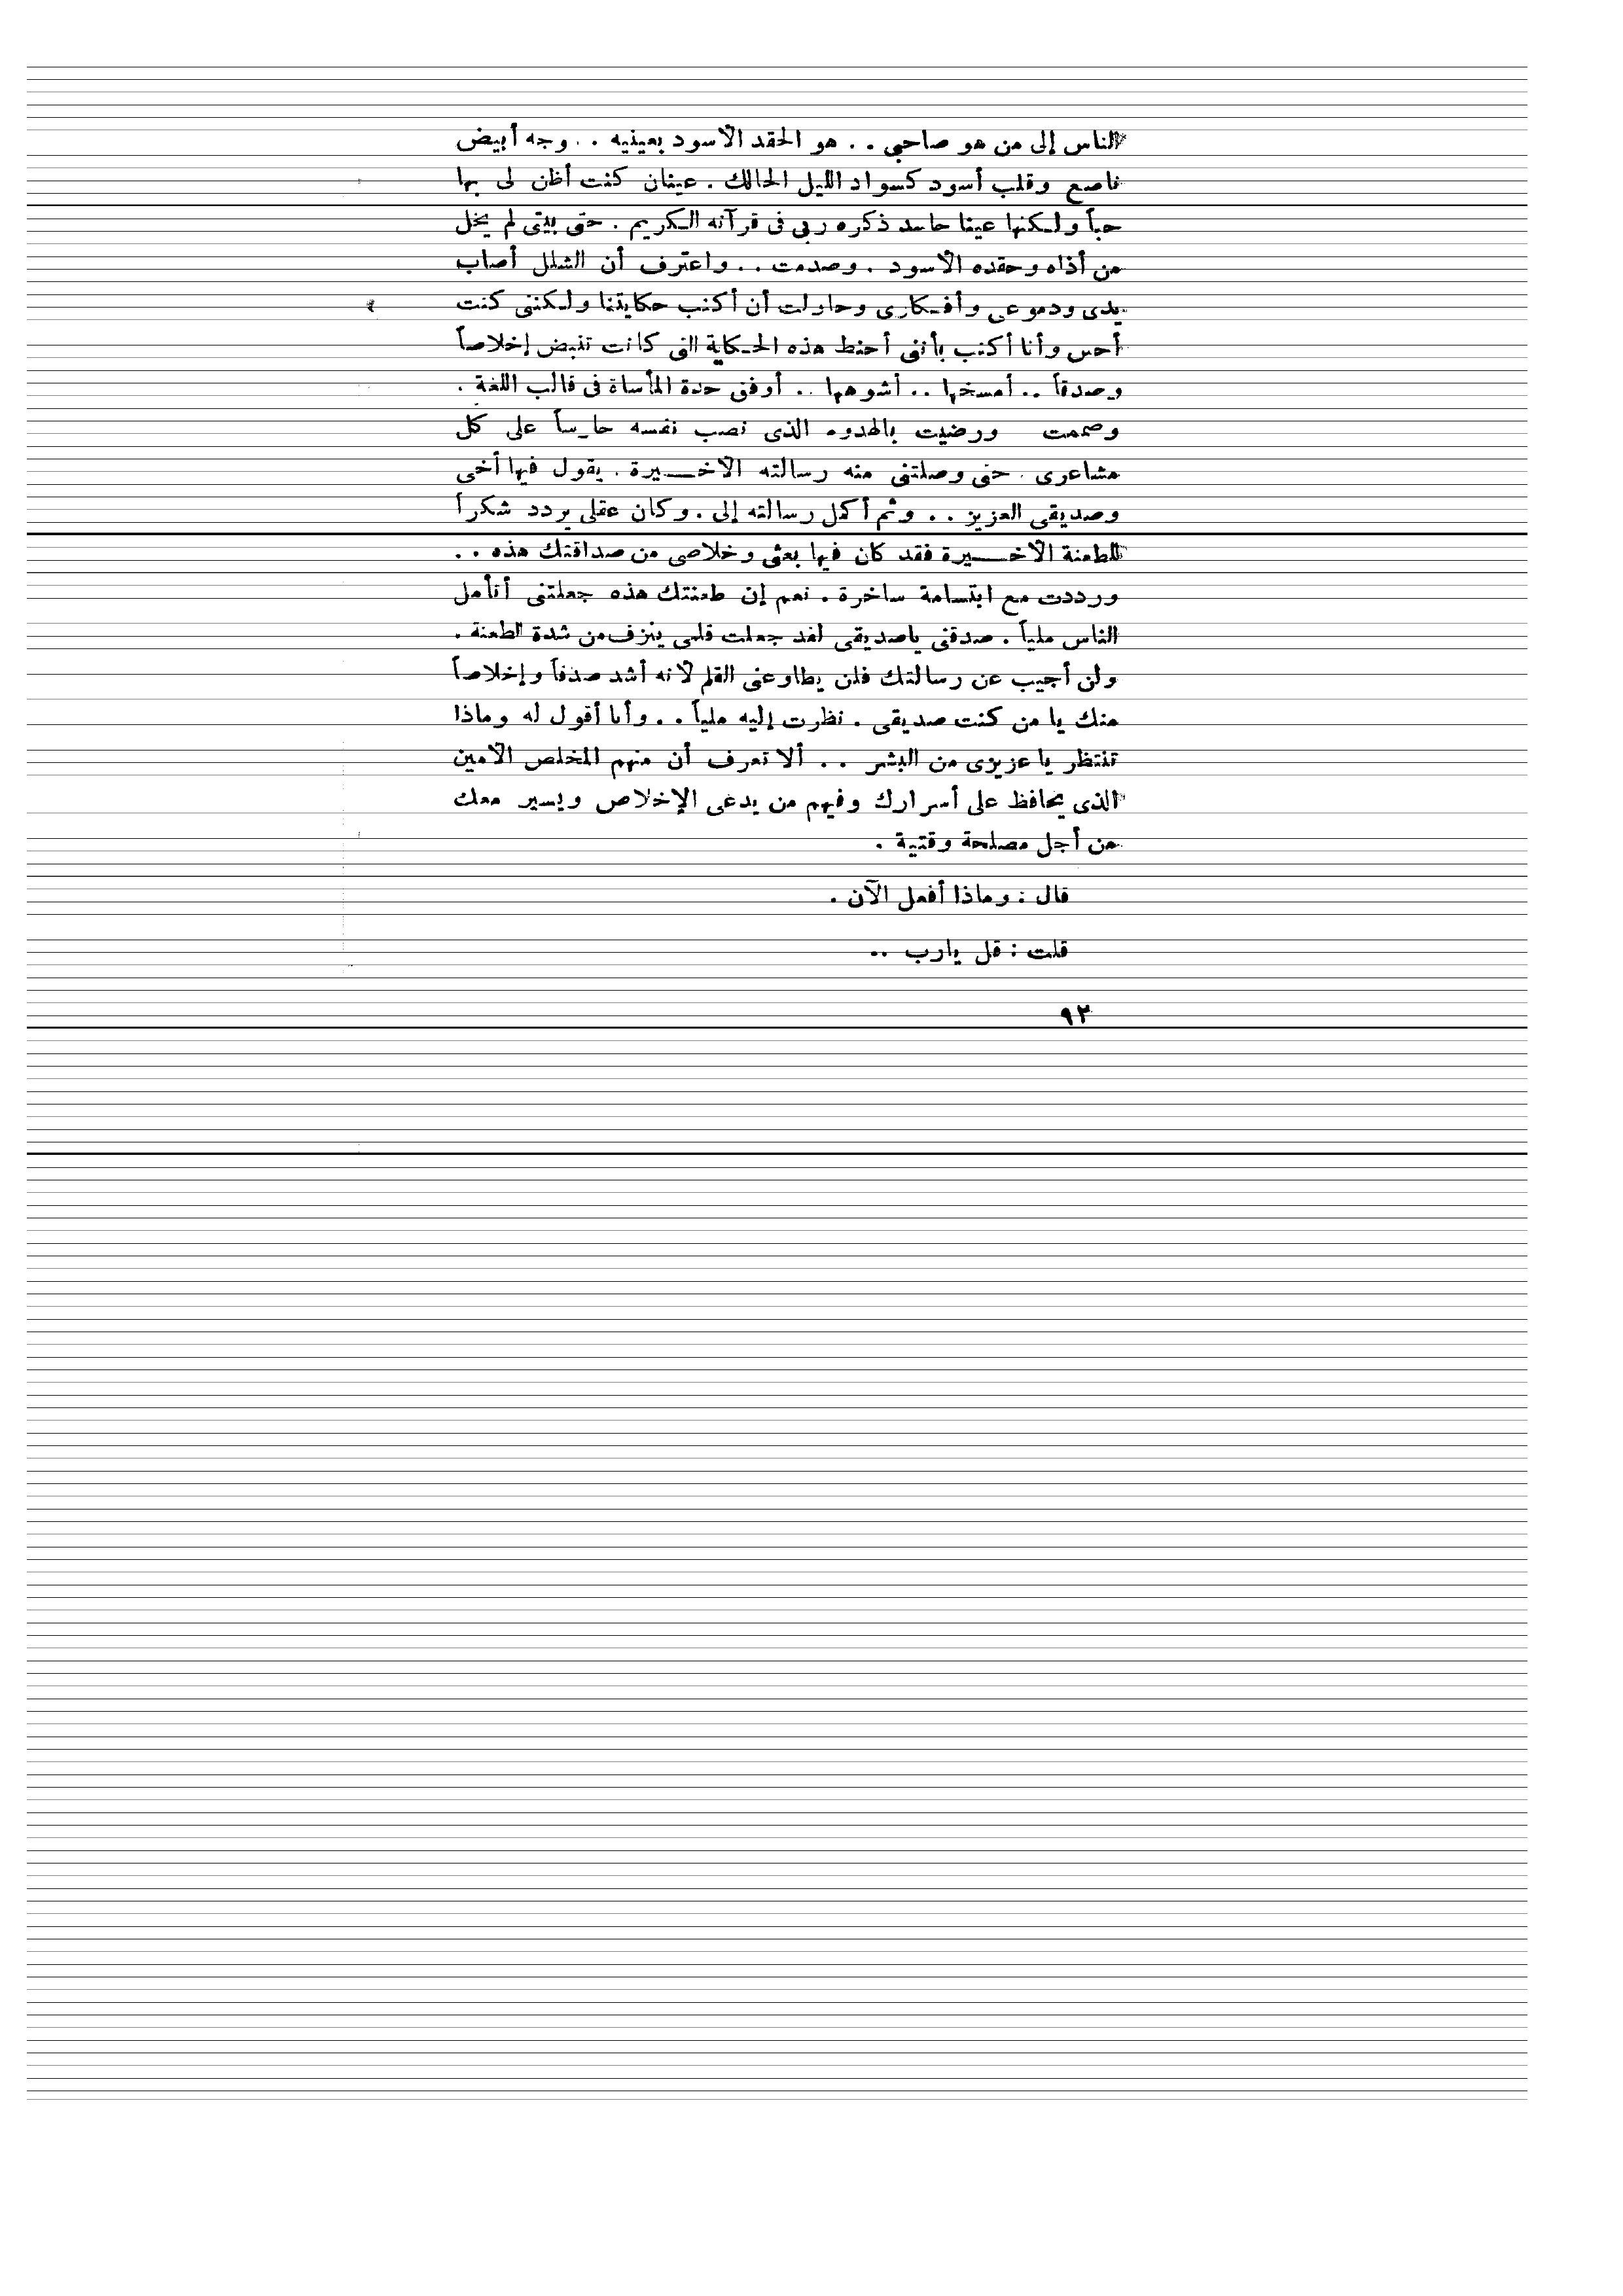 الناس إلى من هو صاحبى . . هو الحقد الاسود بعينيه . . وجه أبيض
ناصع وقلب أسود كسواد الليل الحالك . عينان كنت أظن لى بها
حباً ولكنها عينا حاسد ذكره ربى فى قرآنه الكريم . حتى بيتى لم يخل
من أذاه وحقده الاسود . وصدمت . . واعترف أن الشلل أصاب
يدى ودموعى وأفكارى وحاولت أن أكتب حكايتنا ولكننى كنت
أحس وأنا أكتب بأننى أحنط هذه الحكاية التى كانت تنبض إخلاصاً
وصدقاً .. أمسخها .. أشوهها .. أوفق حدة المأساة فى قالب اللغة .
وصممت ورضيت بالهدوء الذى نصب نفسه حارساً على كل
مشاعرى . حتى وصلتنى منه رسالته الاخيرة . يقول فيها أخى
وصديقى العزيز . . وثم أكمل رسالته إلى . وكان عقلى يردد شكراً
للطعنة الاخيرة فقد كان فيها بعثى وخلاصى من صداقتك هذه . .
ورددت مع ابتسامة ساخرة . نعم إن طعنتك هذه جعلتنى أتأمل
الناس ملياً . صدقنى ياصديقى لقد جعلت قلبى ينزف من شدة الطعنة .
ولن أجيب عن رسالتك فلن يطاوعنى القلم لانه أشد صدقاً وإخلاصاً
منك يا من كنت صديقى . نظرت إليه ملياً . . وأنا أقول له وماذا
تنتظر يا عزيزى من البشر . . ألا تعرف أن منهم المخلص الامين
الذى يحافظ على أسرارك وفيهم من يدعى الإخلاص ويسير معك
من أجل مصلحة وقتية .
قال : وماذا أفعل الآن .
قلت : قل يارب ..
٩٣